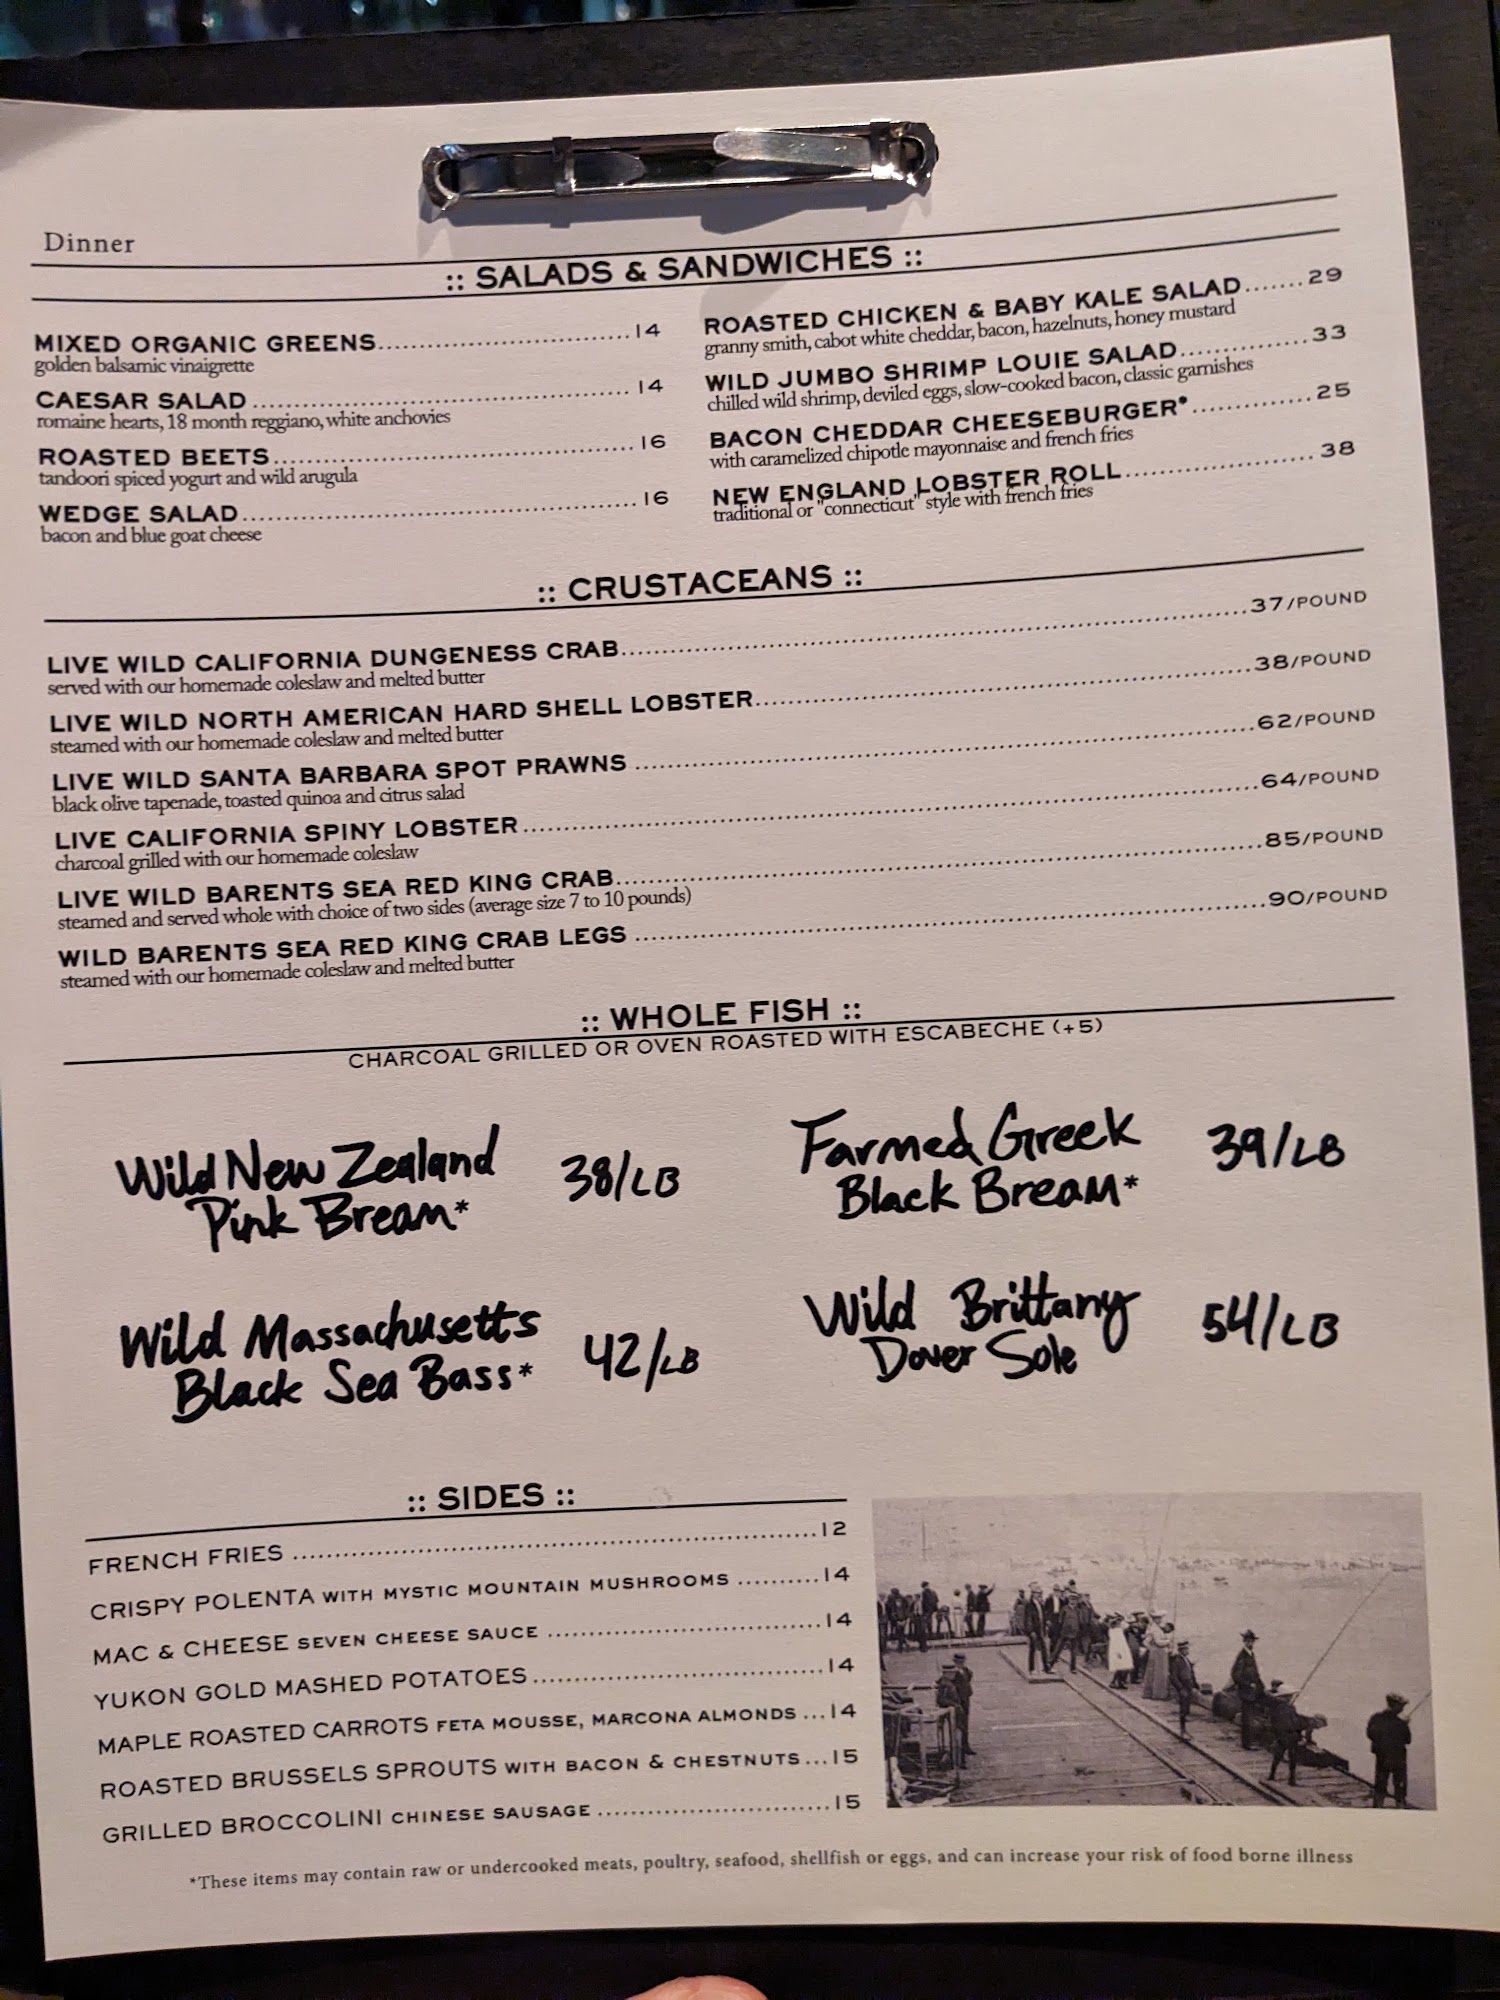 Dinner
:: SALADS & SANDWICHES ::
MIXED ORGANIC GREENS..............................14
golden balsamic vinaigrette
CAESAR SALAD..............................14
romaine hearts, 18 month reggiano, white anchovies
ROASTED BEETS..............................16
tandoori spiced yogurt and wild arugula
WEDGE SALAD..............................16
bacon and blue goat cheese
ROASTED CHICKEN & BABY KALE SALAD.......29
granny smith, cabot white cheddar, bacon, hazelnuts, honey mustard
WILD JUMBO SHRIMP LOUIE SALAD..............33
chilled wild shrimp, deviled eggs, slow-cooked bacon, classic garnishes
BACON CHEDDAR CHEESEBURGER*.............25
with caramelized chipotle mayonnaise and french fries
NEW ENGLAND LOBSTER ROLL....................38
traditional or "connecticut" style with french fries
:: CRUSTACEANS ::
LIVE WILD CALIFORNIA DUNGENESS CRAB..............................37/POUND
served with our homemade coleslaw and melted butter
LIVE WILD NORTH AMERICAN HARD SHELL LOBSTER..............................38/POUND
steamed with our homemade coleslaw and melted butter
LIVE WILD SANTA BARBARA SPOT PRAWNS..............................62/POUND
black olive tapenade, toasted quinoa and citrus salad
LIVE CALIFORNIA SPINY LOBSTER..............................64/POUND
charcoal grilled with our homemade coleslaw
LIVE WILD BARENTS SEA RED KING CRAB..............................85/POUND
steamed and served whole with choice of two sides (average size 7 to 10 pounds)
WILD BARENTS SEA RED KING CRAB LEGS..............................90/POUND
steamed with our homemade coleslaw and melted butter
:: WHOLE FISH ::
CHARCOAL GRILLED OR OVEN ROASTED WITH ESCABECHE (+5)
Wild New Zealand
Pink Bream* 38/LB
Farmed Greek
Black Bream* 39/LB
Wild Massachusetts
Black Sea Bass* 42/LB
Wild Brittany
Dover Sole 54/LB
:: SIDES ::
FRENCH FRIES..............................12
CRISPY POLENTA WITH MYSTIC MOUNTAIN MUSHROOMS..........14
MAC & CHEESE SEVEN CHEESE SAUCE..............................14
YUKON GOLD MASHED POTATOES..............................14
MAPLE ROASTED CARROTS FETA MOUSSE, MARCONA ALMONDS...14
ROASTED BRUSSELS SPROUTS WITH BACON & CHESTNUTS...15
GRILLED BROCCOLINI CHINESE SAUSAGE..............................15
*These items may contain raw or undercooked meats, poultry, seafood, shellfish or eggs, and can increase your risk of food borne illness